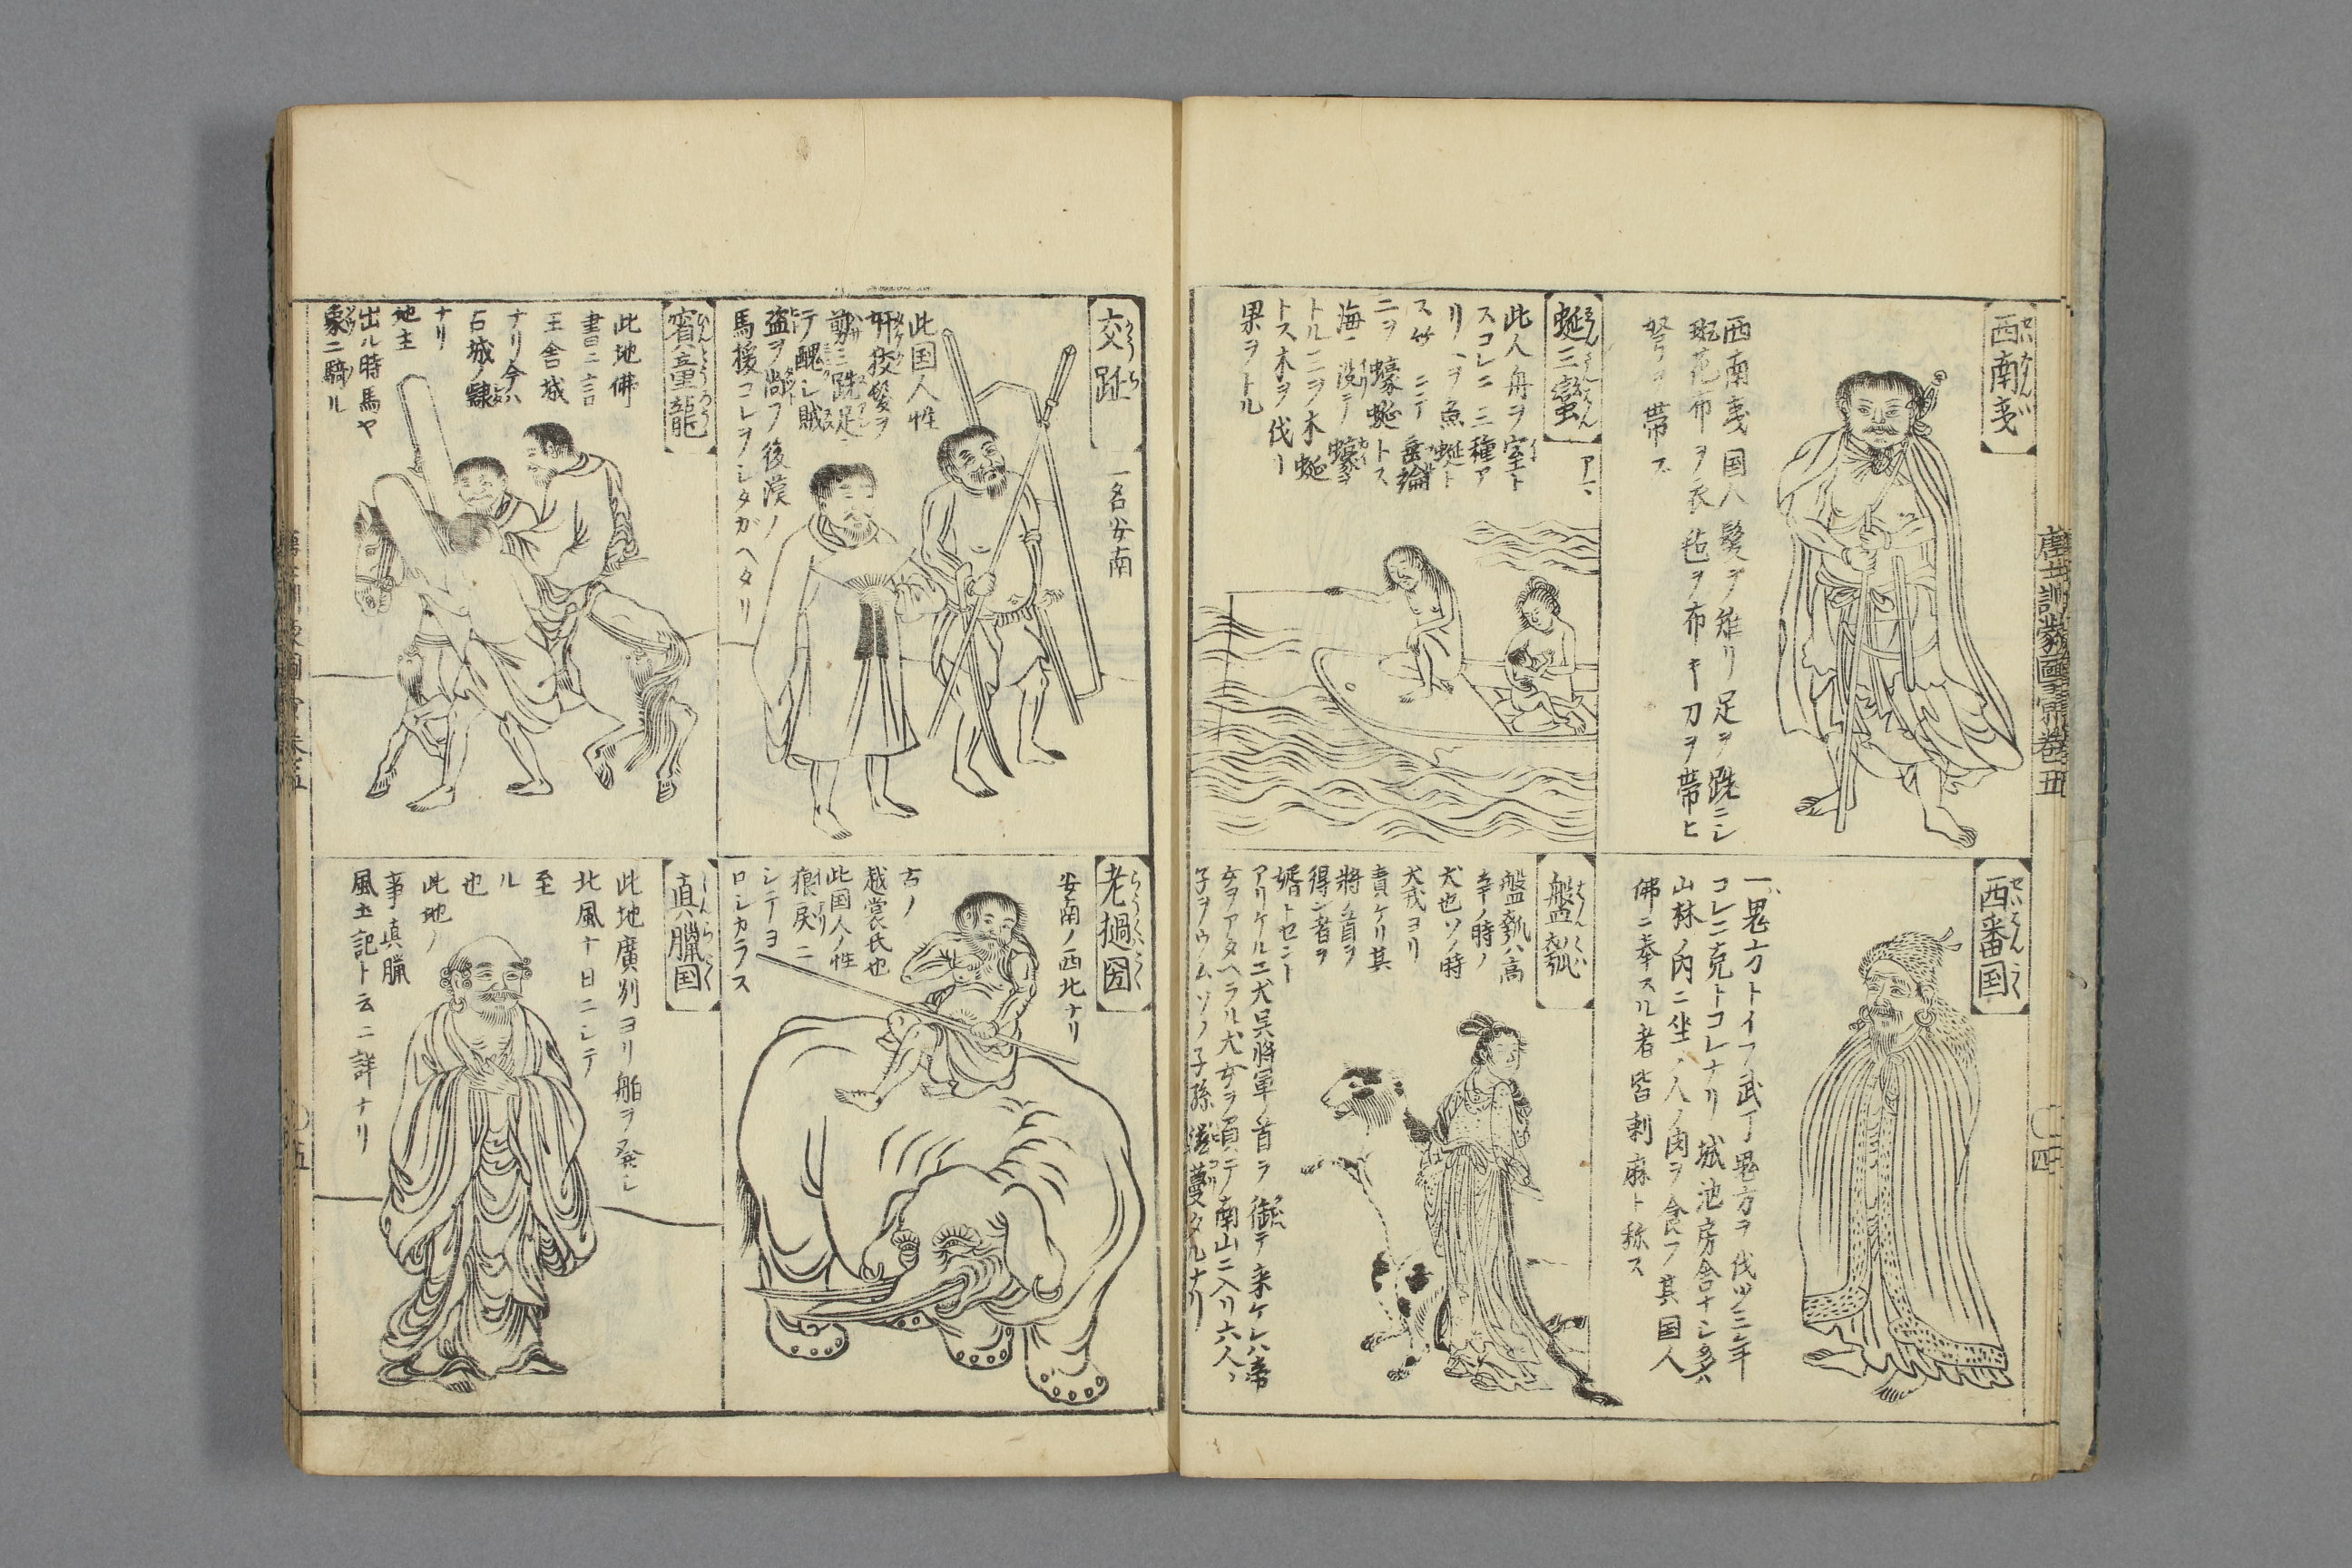 唐土訓蒙圖彙卷五
西南夷
西南夷国人髪ヲ椎リ足ヲ跣ニシ
斑花布ヲ衣毡ヲ布キ刀ヲ帯ヒ
弩ヲ帯ス
西番国
一ニ鬼方トイフ武丁鬼方ヲ伐ツ三年
コレニ克トコレナリ城池房舎ナシ多ハ
山林ノ内ニ坐ス人ノ肉ヲ食フ其国人
佛ニ奉スル者皆剌麻ト称ス
四
蜒三蠻
此人舟ヲ室ト
スコレニ三種ア
リ一ヲ魚蜒ト
ニヲ蠔蜒トス
海ニ没テ蠔ヲ
トル三ヲ木蜒
トス木ヲ伐リ
果ヲトル
盤瓠
盤瓠ハ高
辛ノ時ノ
犬也ソノ時
犬戎ヨリ
責ケリ其
將ノ首ヲ
得ン者ヲ
婿トセント
アリケルニ犬呉將軍ノ首ヲ御テ来ケレハ帝
女ヲアタヘラル犬女ヲ負テ南山ニ入リ六人ノ
子ヲウムソノ子孫滋蔓タルナリ
交趾
一名安南
此国人性
奸狡髪ヲ
剪ニ跣足
テ醜シ賊
盗ヲ尚フ後漢ノ
馬援コレヲシタガヘタリ
老撾国
安南ノ西北ナリ
古ノ
越裳氏也
此国人ノ性
狼戻ニ
シテヨ
ロシカラス
賓童龍
此地佛
書ニ言
王舎城
ナリ今ハ
占城ノ隸
ナリ
地主
出ル時馬ヤ
象ニ騎ル
真臘国
此地廣州ヨリ舶ヲ発シ
北風十日ニシテ
至
ル
也
此地ノ
事真臘
風土記ト云ニ詳ナリ